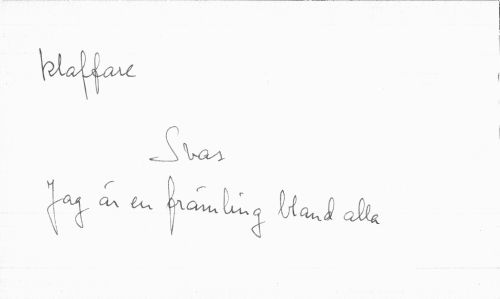 klaffare
Svas
Jag är en främling bland alla